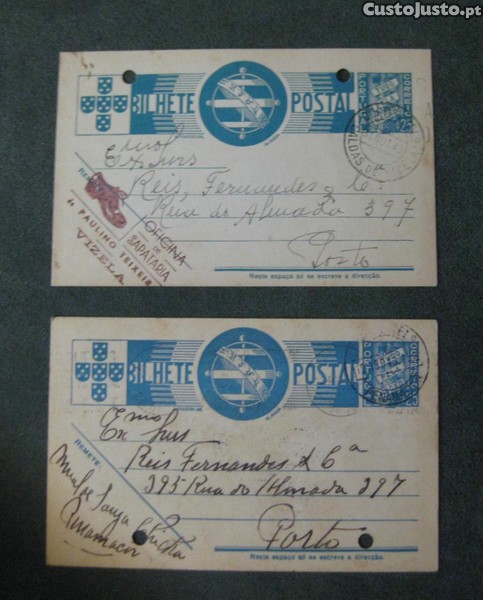 CustoJusto.pt
BILHETE POSTAL
25
CALDAS DE
Exmos
Ex Snrs
Reis, Fernandes & Cª
Rua do Almada 397
Porto
OFICINA
DE
SAPATARIA
de PAULINO TEIXEIRA
VIZELA
Neste espaço só se escreve a direcção.
BILHETE POSTAL
Ex Snrs
Reis Fernandes & Cª
395 Rua do Almada 397
Porto
REMETE:
Penamacor
Neste espaço só se escreve a direcção.